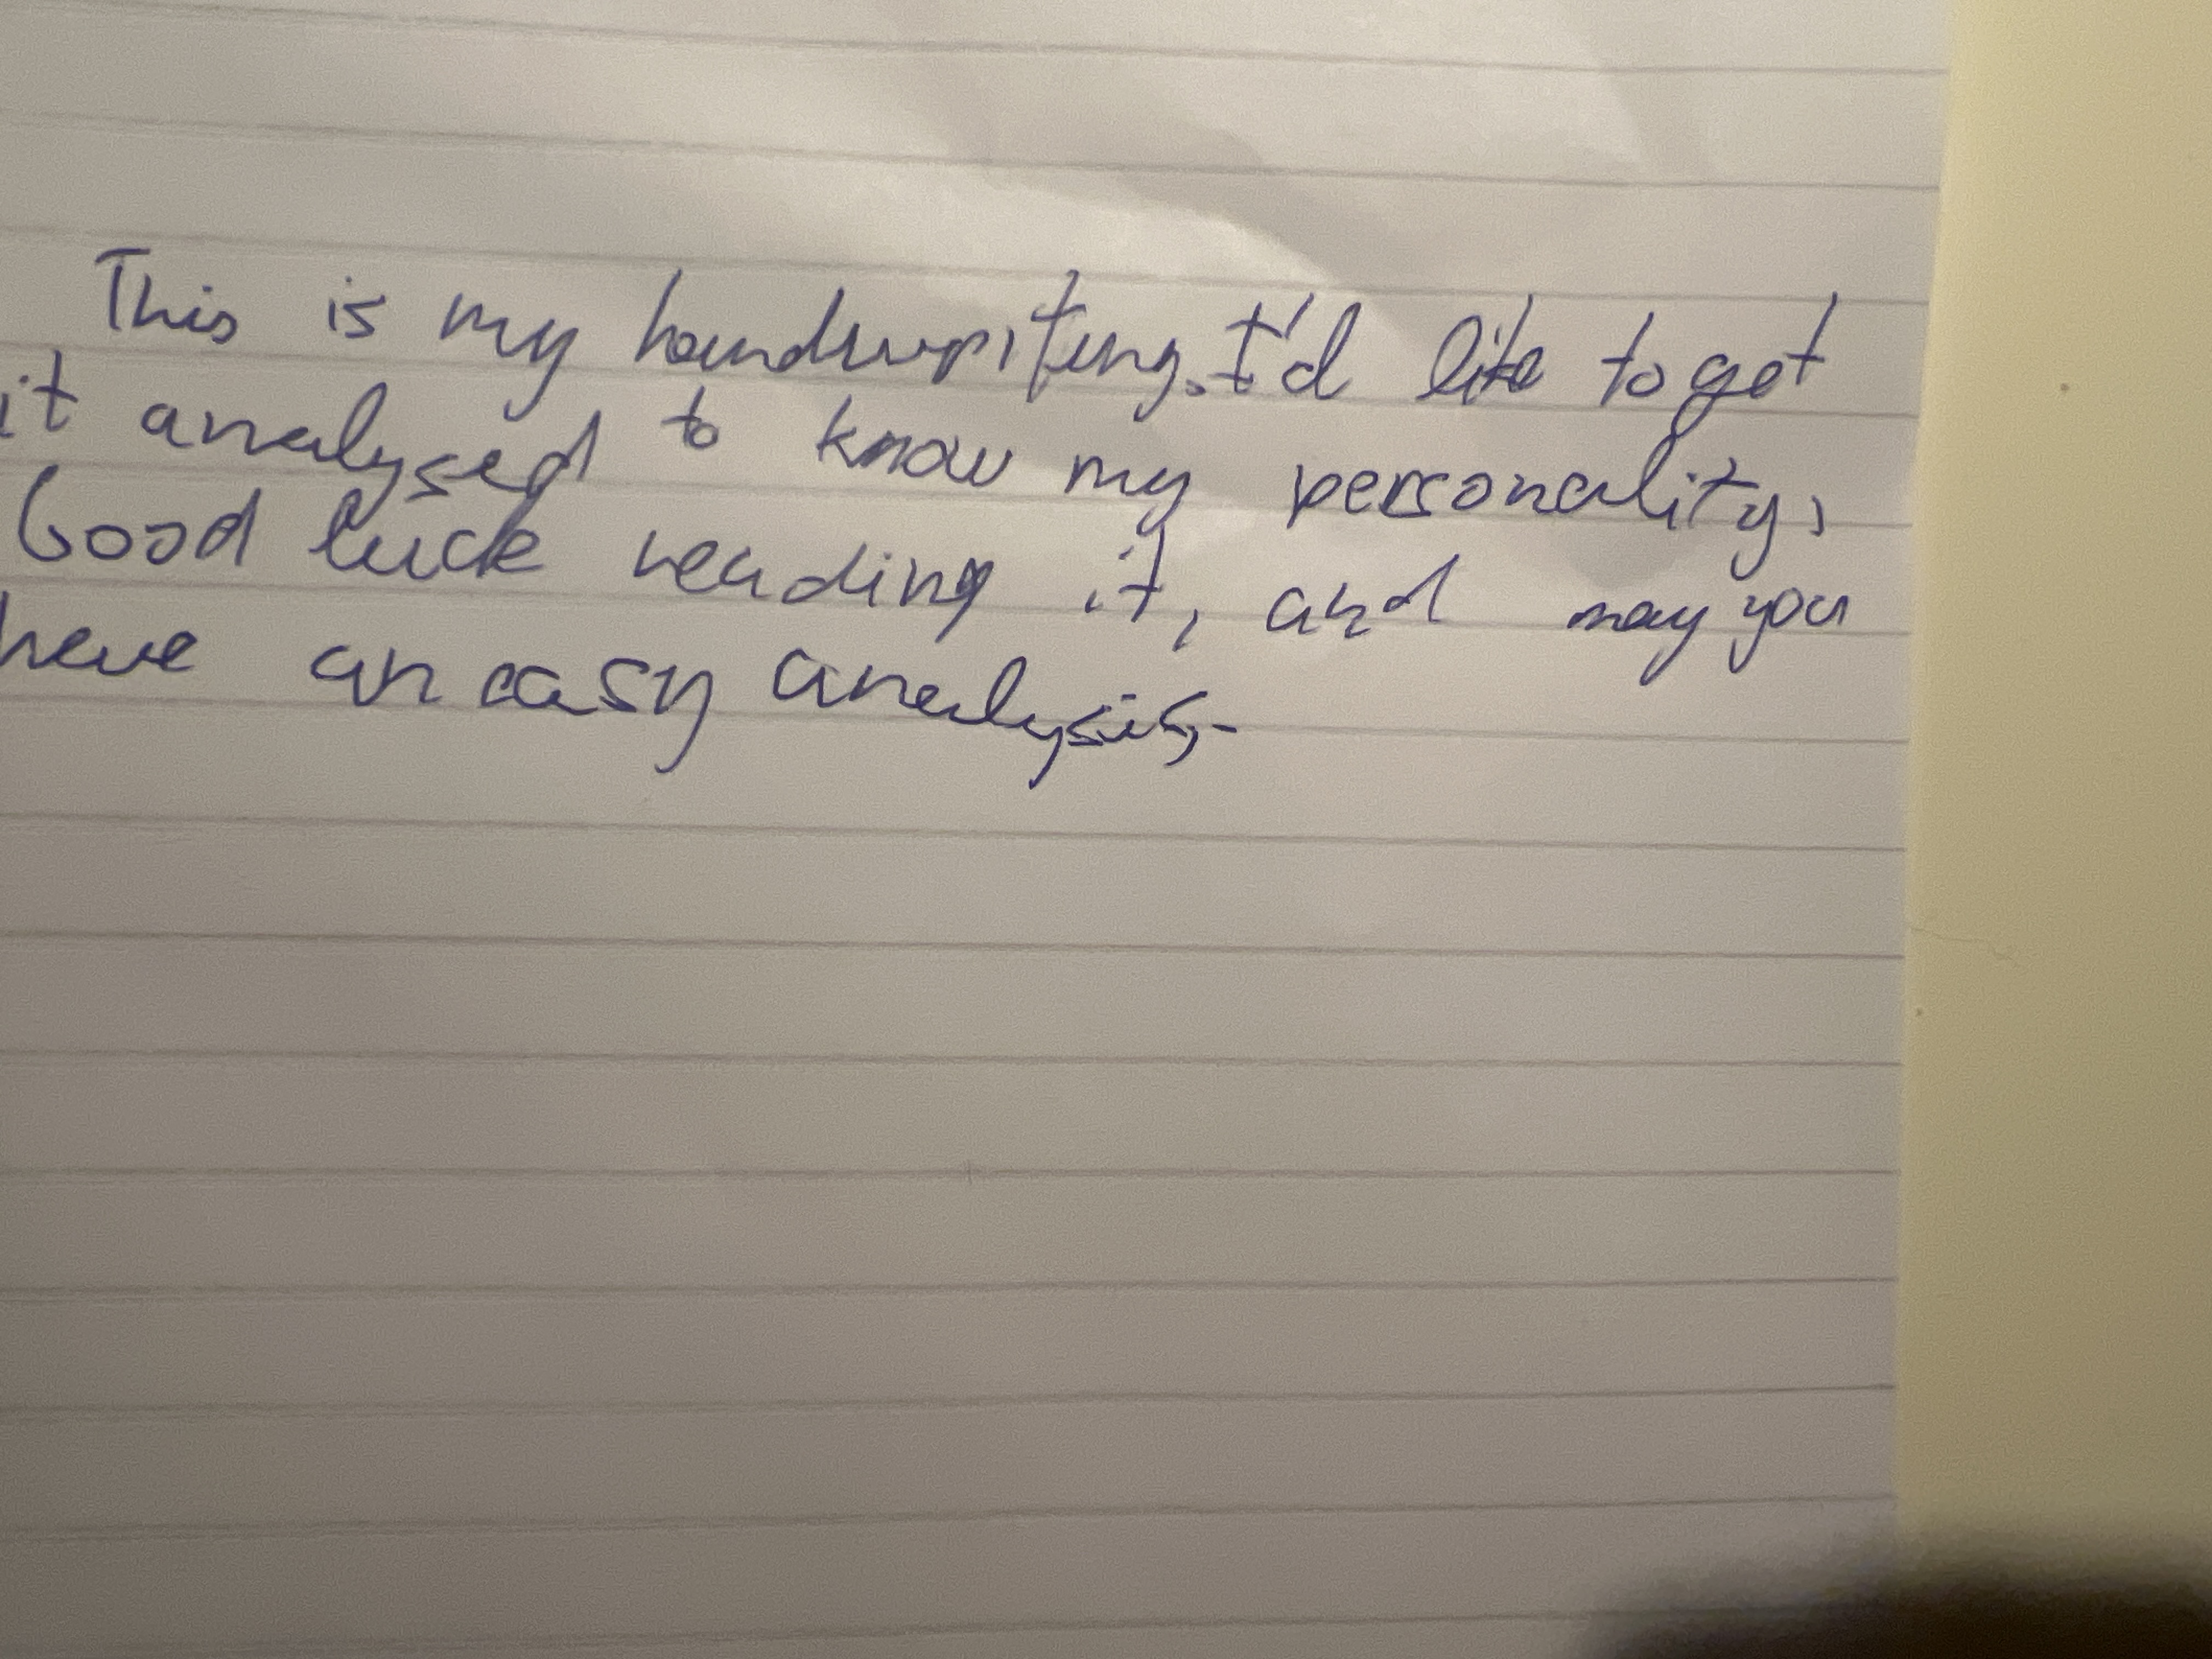 This is my handwriting. I'd like to get
it analysed to know my personality,
Good luck reading it, and may you
have an easy analysis.-